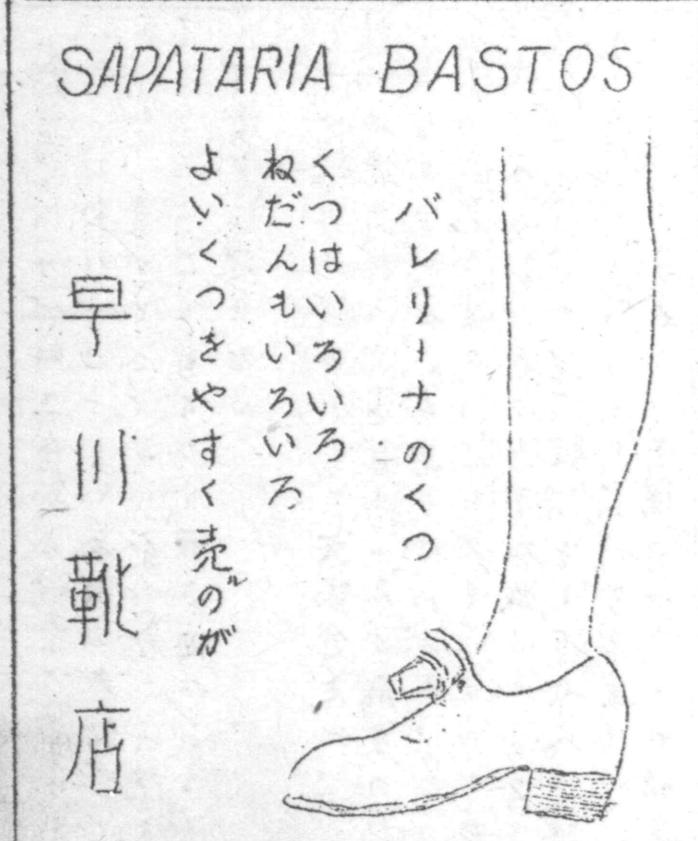 SAPATARIA BASTOS
バレリーナのくつ
くつはいろいろ
ねだんもいろいろ
よいくつをやすく売ルのが
早川靴店